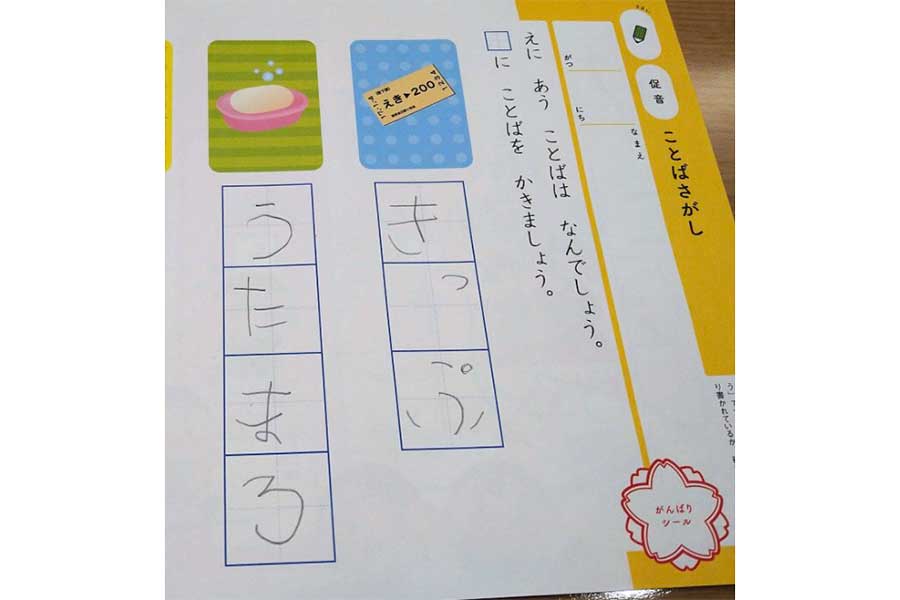 促音
ことばさがし
がつ
にち
なまえ
えに あう ことばは なんでしょう。
□に ことばを かきましょう。
えき▶200
きっぷ
うたまろ
がんばり
シール